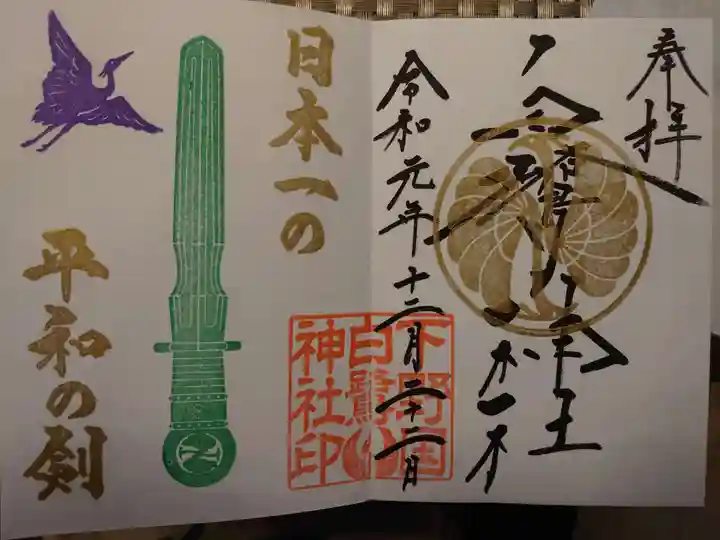 奉拝
令和元年十二月二十二月
下野国
白鷺
神社印
日本一の
平和の剣